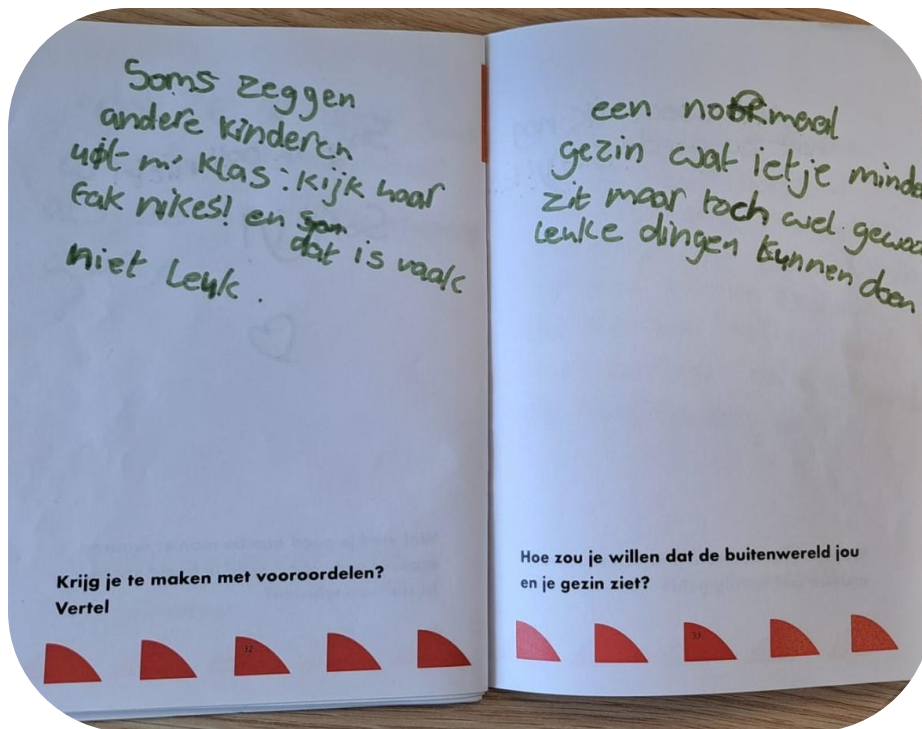 Soms zeggen
andere kinderen
uit m' klas: kijk haar
fak nikes! en
dat is vaak
niet leuk.
Krijg je te maken met vooroordelen?
Vertel
32
een normaal
gezin wat ietje minde
zit maar toch wel gewoo
leuke dingen kunnen doen
Hoe zou je willen dat de buitenwereld jou
en je gezin ziet?
33